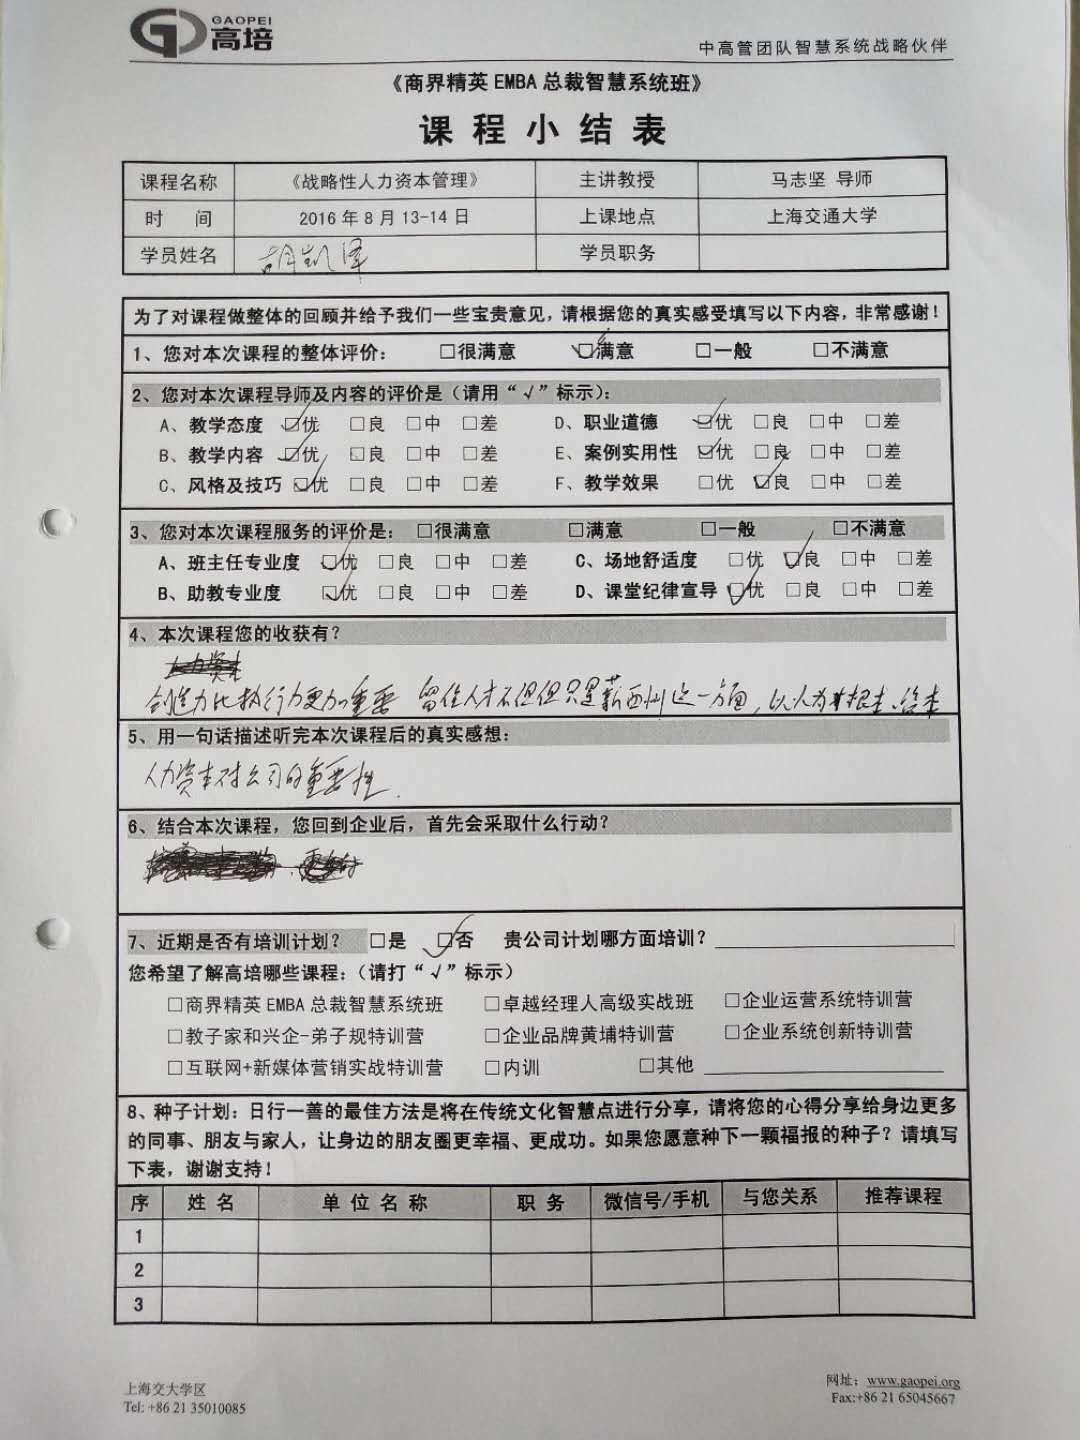 GAOPEI
高培
中高管团队智慧系统战略伙伴
《商界精英 EMBA 总裁智慧系统班》
课程小结表
课程名称 《战略性人力资本管理》 主讲教授 马志坚 导师
时 间 2016 年 8 月 13-14 日 上课地点 上海交通大学
学员姓名 胡凯泽 学员职务
为了对课程做整体的回顾并给予我们一些宝贵意见，请根据您的真实感受填写以下内容，非常感谢！
1、您对本次课程的整体评价： □很满意 ☑满意 □一般 □不满意
2、您对本次课程导师及内容的评价是（请用“√”标示）：
A、教学态度 ☑优 □良 □中 □差 D、职业道德 ☑优 □良 □中 □差
B、教学内容 ☑优 □良 □中 □差 E、案例实用性 ☑优 □良 □中 □差
C、风格及技巧 ☑优 □良 □中 □差 F、教学效果 □优 ☑良 □中 □差
3、您对本次课程服务的评价是： □很满意 □满意 □一般 □不满意
A、班主任专业度 ☑优 □良 □中 □差 C、场地舒适度 □优 ☑良 □中 □差
B、助教专业度 ☑优 □良 □中 □差 D、课堂纪律宣导 ☑优 □良 □中 □差
4、本次课程您的收获有？
人力资本
创造力比执行力更加重要 留住人才不但但只是薪酬这一方面，以人为根本、资本
5、用一句话描述听完本次课程后的真实感想：
人力资本对公司的重要性.
6、结合本次课程，您回到企业后，首先会采取什么行动？
7、近期是否有培训计划？ □是 ☑否 贵公司计划哪方面培训？
您希望了解高培哪些课程：（请打“√”标示）
□商界精英 EMBA 总裁智慧系统班 □卓越经理人高级实战班 □企业运营系统特训营
□教子家和兴企-弟子规特训营 □企业品牌黄埔特训营 □企业系统创新特训营
□互联网+新媒体营销实战特训营 □内训 □其他
8、种子计划：日行一善的最佳方法是将在传统文化智慧点进行分享，请将您的心得分享给身边更多
的同事、朋友与家人，让身边的朋友圈更幸福、更成功。如果您愿意种下一颗福报的种子？请填写
下表，谢谢支持！
序 姓 名 单 位 名 称 职 务 微信号/手机 与您关系 推荐课程
1
2
3
上海交大学区 网址：www.gaopei.org
Tel: +86 21 35010085 Fax:+86 21 65045667